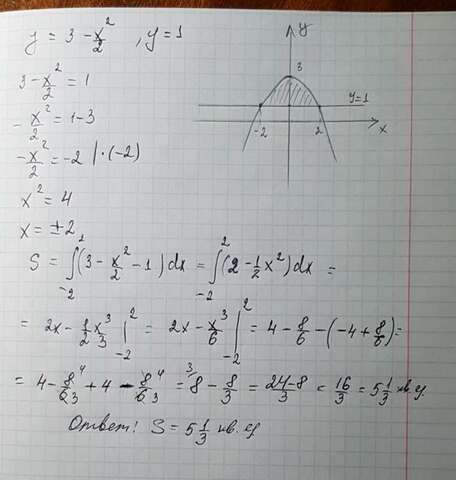 y = 3 - x²/2 , y = 1
3 - x²/2 = 1
- x²/2 = 1 - 3
- x²/2 = -2 | · (-2)
x² = 4
x = ±2
y
3
y=1
-2
2
x
S = ∫₋₂² (3 - x²/2 - 1) dx = ∫₋₂² (2 - 1/2 x²) dx =
= 2x - 1/2 x³/3 |₋₂² = 2x - x³/6 |₋₂² = 4 - 8/6 - (-4 + 8/6) =
= 4 - 8⁴/6₃ + 4 - 8⁴/6₃ = ³⁄8 - 8/3 = 24-8/3 = 16/3 = 5 1/3 кв. ед.
Ответ: S = 5 1/3 кв. ед.